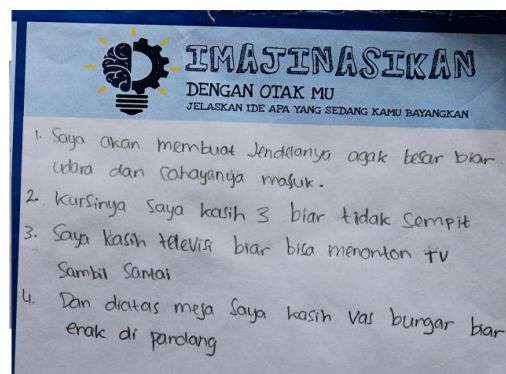 IMAJINASIKAN
DENGAN OTAK MU
JELASKAN IDE APA YANG SEDANG KAMU BAYANGKAN
1. Saya akan membuat Jendelanya agak besar biar
udara dan cahayanya masuk.
2. Kursinya Saya kasih 3 biar tidak Sempit
3. Saya kasih televisi biar bisa menonton TV
Sambil Santai
4. Dan diatas meja Saya kasih Vas bungar biar
enak di pandang